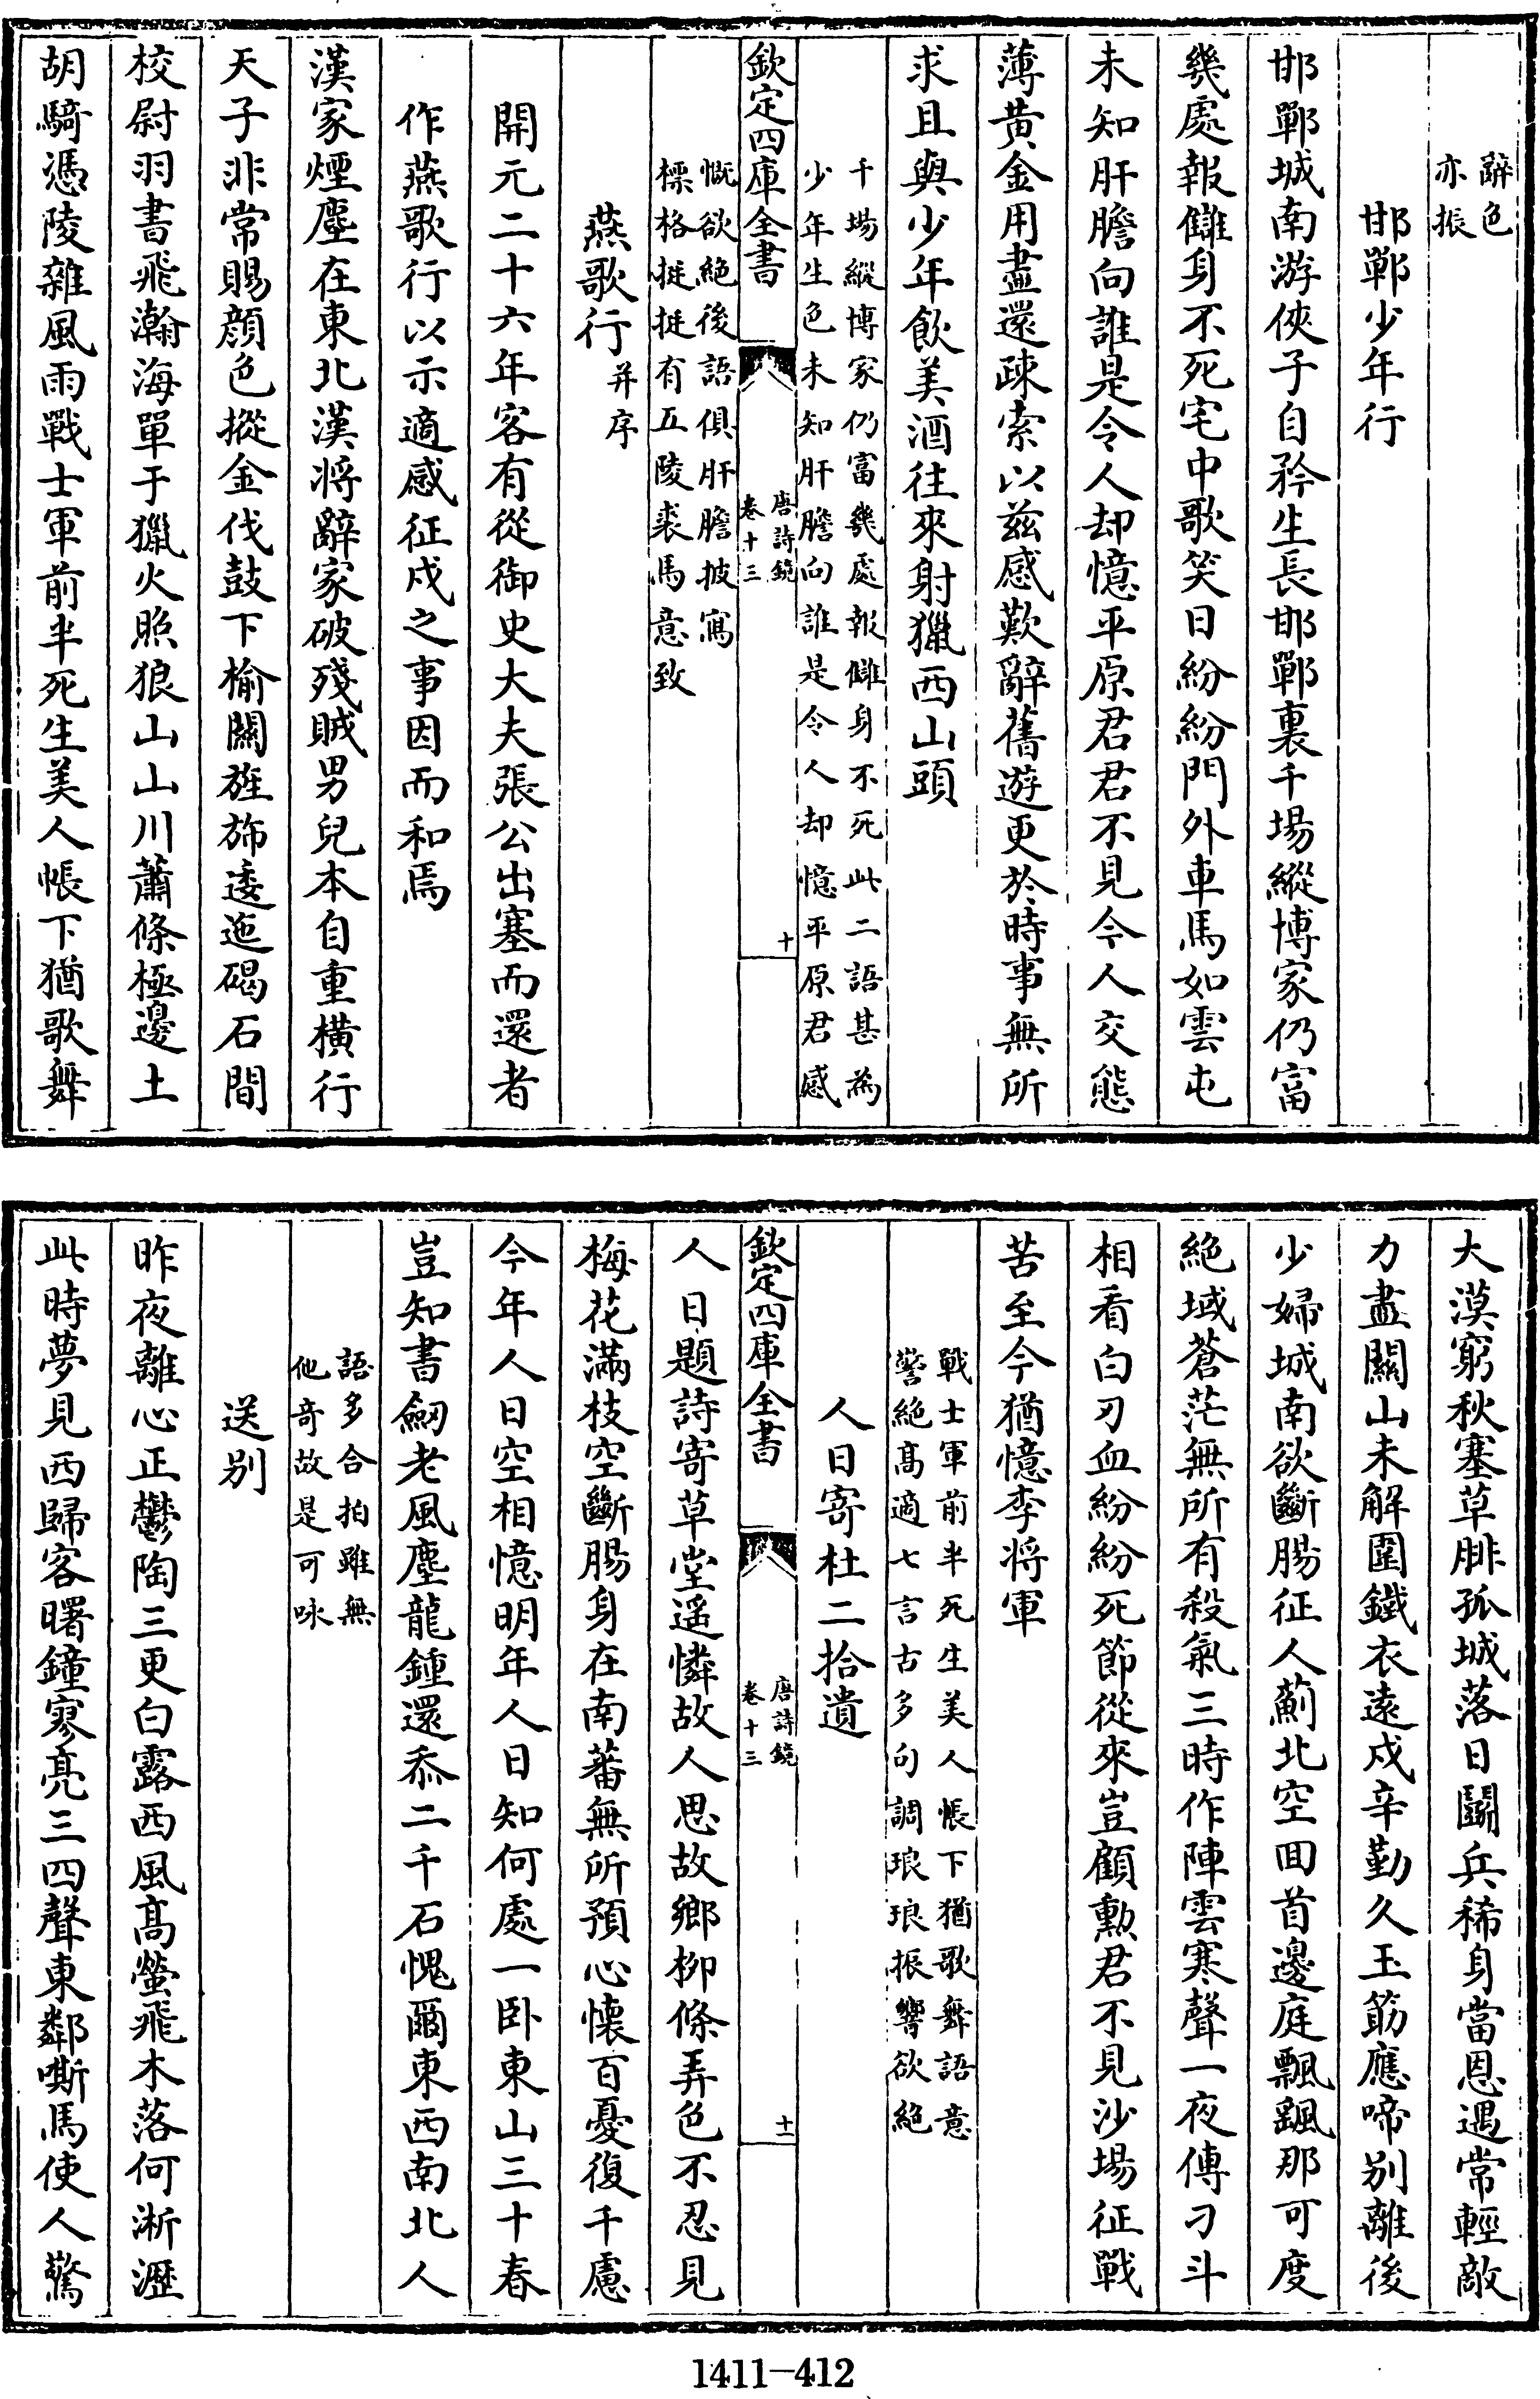 辭色
亦振
邯鄲少年行
邯鄲城南游俠子自矜生長邯鄲裏千場縱博家仍富
幾處報讎身不死宅中歌笑日紛紛門外車馬如雲屯
未知肝膽向誰是令人却憶平原君君不見今人交態
薄黄金用盡還疎索以兹感歎辭舊遊更於時事無所
求且與少年飲美酒往來射獵西山頭
千場縱博家仍富幾處報讎身不死此二語甚為
少年生色未知肝膽向誰是令人却憶平原君感
欽定四庫全書
唐詩鏡
卷十三
十
慨欲絶後語俱肝膽披寫
標格挺挺有五陵裘馬意致
燕歌行并序
開元二十六年客有從御史大夫張公出塞而還者
作燕歌行以示適感征戍之事因而和焉
漢家煙塵在東北漢將辭家破殘賊男兒本自重横行
天子非常賜顔色摐金伐鼓下榆關旌斾逶迤碣石間
校尉羽書飛瀚海單于獵火照狼山山川蕭條極邊土
胡騎憑陵雜風雨戰士軍前半死生美人帳下猶歌舞
大漠窮秋塞草腓孤城落日鬭兵稀身當恩遇常輕敵
力盡關山未解圍鐵衣遠戍辛勤久玉筯應啼别離後
少婦城南欲斷腸征人薊北空回首邊庭飄颻那可度
絶域蒼茫無所有殺氣三時作陣雲寒聲一夜傳刁斗
相看白刃血紛紛死節從來豈顧勲君不見沙場征戰
苦至今猶憶李将軍
戰士軍前半死生美人帳下猶歌舞語意
警絶髙適七言古多句調琅琅振響欲絶
人日寄杜二拾遺
欽定四庫全書
唐詩鏡
卷十三
十一
人日題詩寄草堂遥憐故人思故鄉柳條弄色不忍見
梅花滿枝空斷腸身在南蕃無所預心懐百憂復千慮
今年人日空相憶明年人日知何處一卧東山三十春
豈知書劒老風塵龍鍾還忝二千石愧爾東西南北人
語多合拍雖無
他奇故是可咏
送别
昨夜離心正鬱陶三更白露西風髙螢飛木落何淅瀝
此時夢見西歸客曙鐘寥亮三四聲東鄰嘶馬使人驚
1411—412